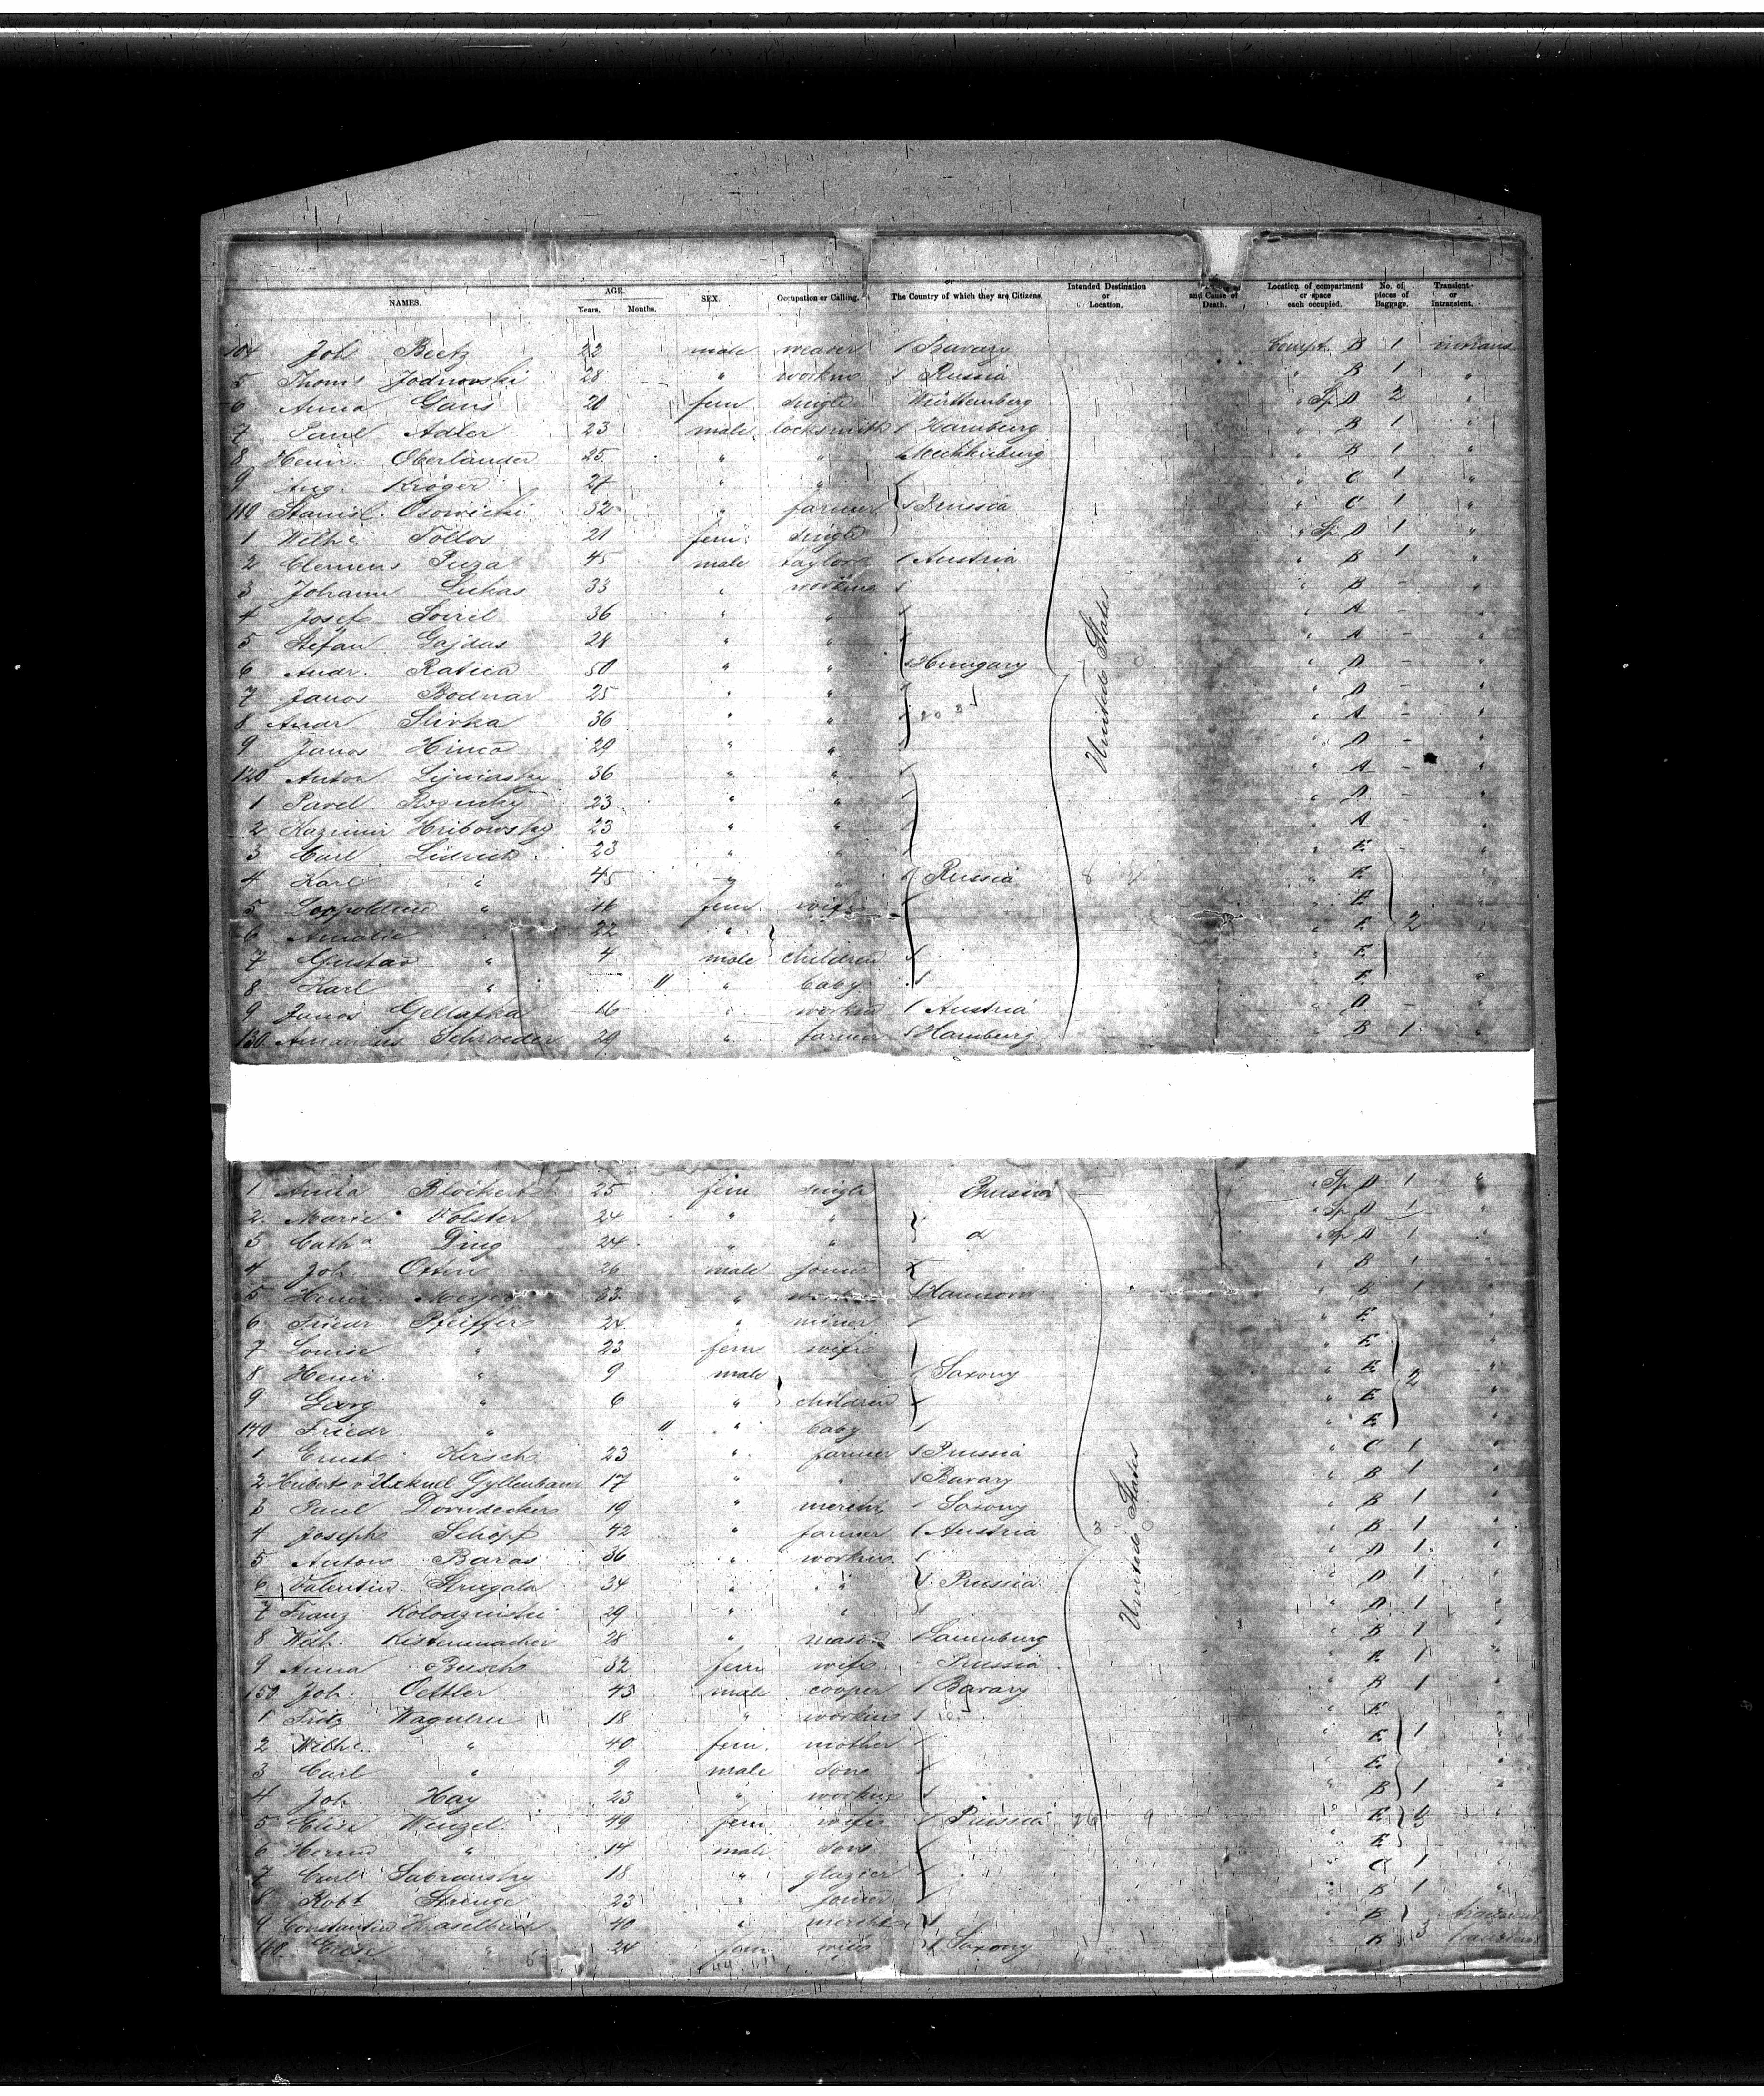 NAMES. AGE. SEX. Occupation or Calling. The Country of which they are Citizens. Intended Destination or Location. and Cause of Death. Location of compartment or space each occupied. No. of pieces of Baggage. Transient or Intransient.
Years. Months.
104 Joh. Beetz 22 male weaver Bavary Compt. B 1 intrans
5 Thom's Jodnovski 28 " workm Russia " B 1 "
6 Anna Gans 20 fem single Württemberg " Sp. D 2 "
7 Paul Adler 23 male locksmith Hamburg " B 1 "
8 Heinr. Oberländer 25 " " " B 1 "
9 Aug. Kröger 27 " " " C 1 "
110 Stanisl. Osowicki 32 " farmer Prussia " C 1 "
1 Wilh. Tollos 21 fem. single " Sp. D 1 "
2 Clemens Puza 45 male taylor Austria " B 1 "
3 Johann Lukas 33 " workm " B - "
4 Josef 36 " " " A - "
5 Stefan Gajdas 28 " " " A - "
6 Andr. Ratica 50 " " Hungary " A - "
7 Janos Bodnar 25 " " " A - "
8 Andr Slivka 36 " " " A - "
9 Janos 29 " " " A - "
120 Anton 36 " " " A - "
1 Pavel 23 " " " A - "
2 Kazimir Hribowsky 23 " " " A - "
3 Carl 23 " " " E - "
4 Karl " 45 " " Russia " E "
5 Leopoldine " fem wife " E "
6 Amalie " 22 " " E 2 "
7 Gustav " 4 male children " E "
8 Karl " 11 " baby " E "
9 Janos Gellatka 16 " workm Austria " A - "
130 Amandus Schroeder 29 " farmer Hamburg " B 1 "
United States
1 Anna Blockert 25 fem single Prussia " Sp. D 1 "
2 Marie Volster 24 " " " Sp D 1 "
3 Cath a 24 " " " Sp D 1 "
4 Joh. 26 male joiner " B 1 "
5 Heinr. Meyer 33 " workm Hannover " B 1 "
6 Friedr. Pfeiffer 24 " miner " E "
7 Louise " 23 fem wife " E "
8 Heinr. " 9 male Saxony " E 2 "
9 Georg " 6 " children " E "
140 Friedr. " 11 " baby " E "
1 Ernst Kirsch 23 " farmer Prussia " C 1 "
2 Hubert v Uxkuel Gyllenband 17 " " Bavary " B 1 "
3 Paul Dorndecker 19 " mercht Saxony " B 1 "
4 Joseph Schöpf 42 " farmer Austria " B 1 "
5 Anton Baras 36 " workm " A 1 "
6 Valentin Strugala 34 " " Prussia " A 1 "
7 Franz Kolodzinski 29 " " " A 1 "
8 Wilh. Kistenmacher 28 " mason Lauenburg " B 1 "
9 Anna Busch 32 fem wife Prussia " E 1 "
150 Joh. Oettler 43 male cooper Bavary " B 1 "
1 Fritz 18 " workm " E "
2 Wilh e. " 40 fem. mother " E 1 "
3 Carl " 9 male son " E "
4 Joh. Hay 23 " workm " B 1 "
5 Elise Wenzel 49 fem wife Prussia 26 9 " E "
6 " 14 male son " E "
7 Carl Sabransky 18 " glazier " C 1 "
8 Robt Strenge 23 " joiner " B 1 "
9 Constantin Haselbach 40 " mercht " B 3
160 " 24 fem wife Saxony " B
United States